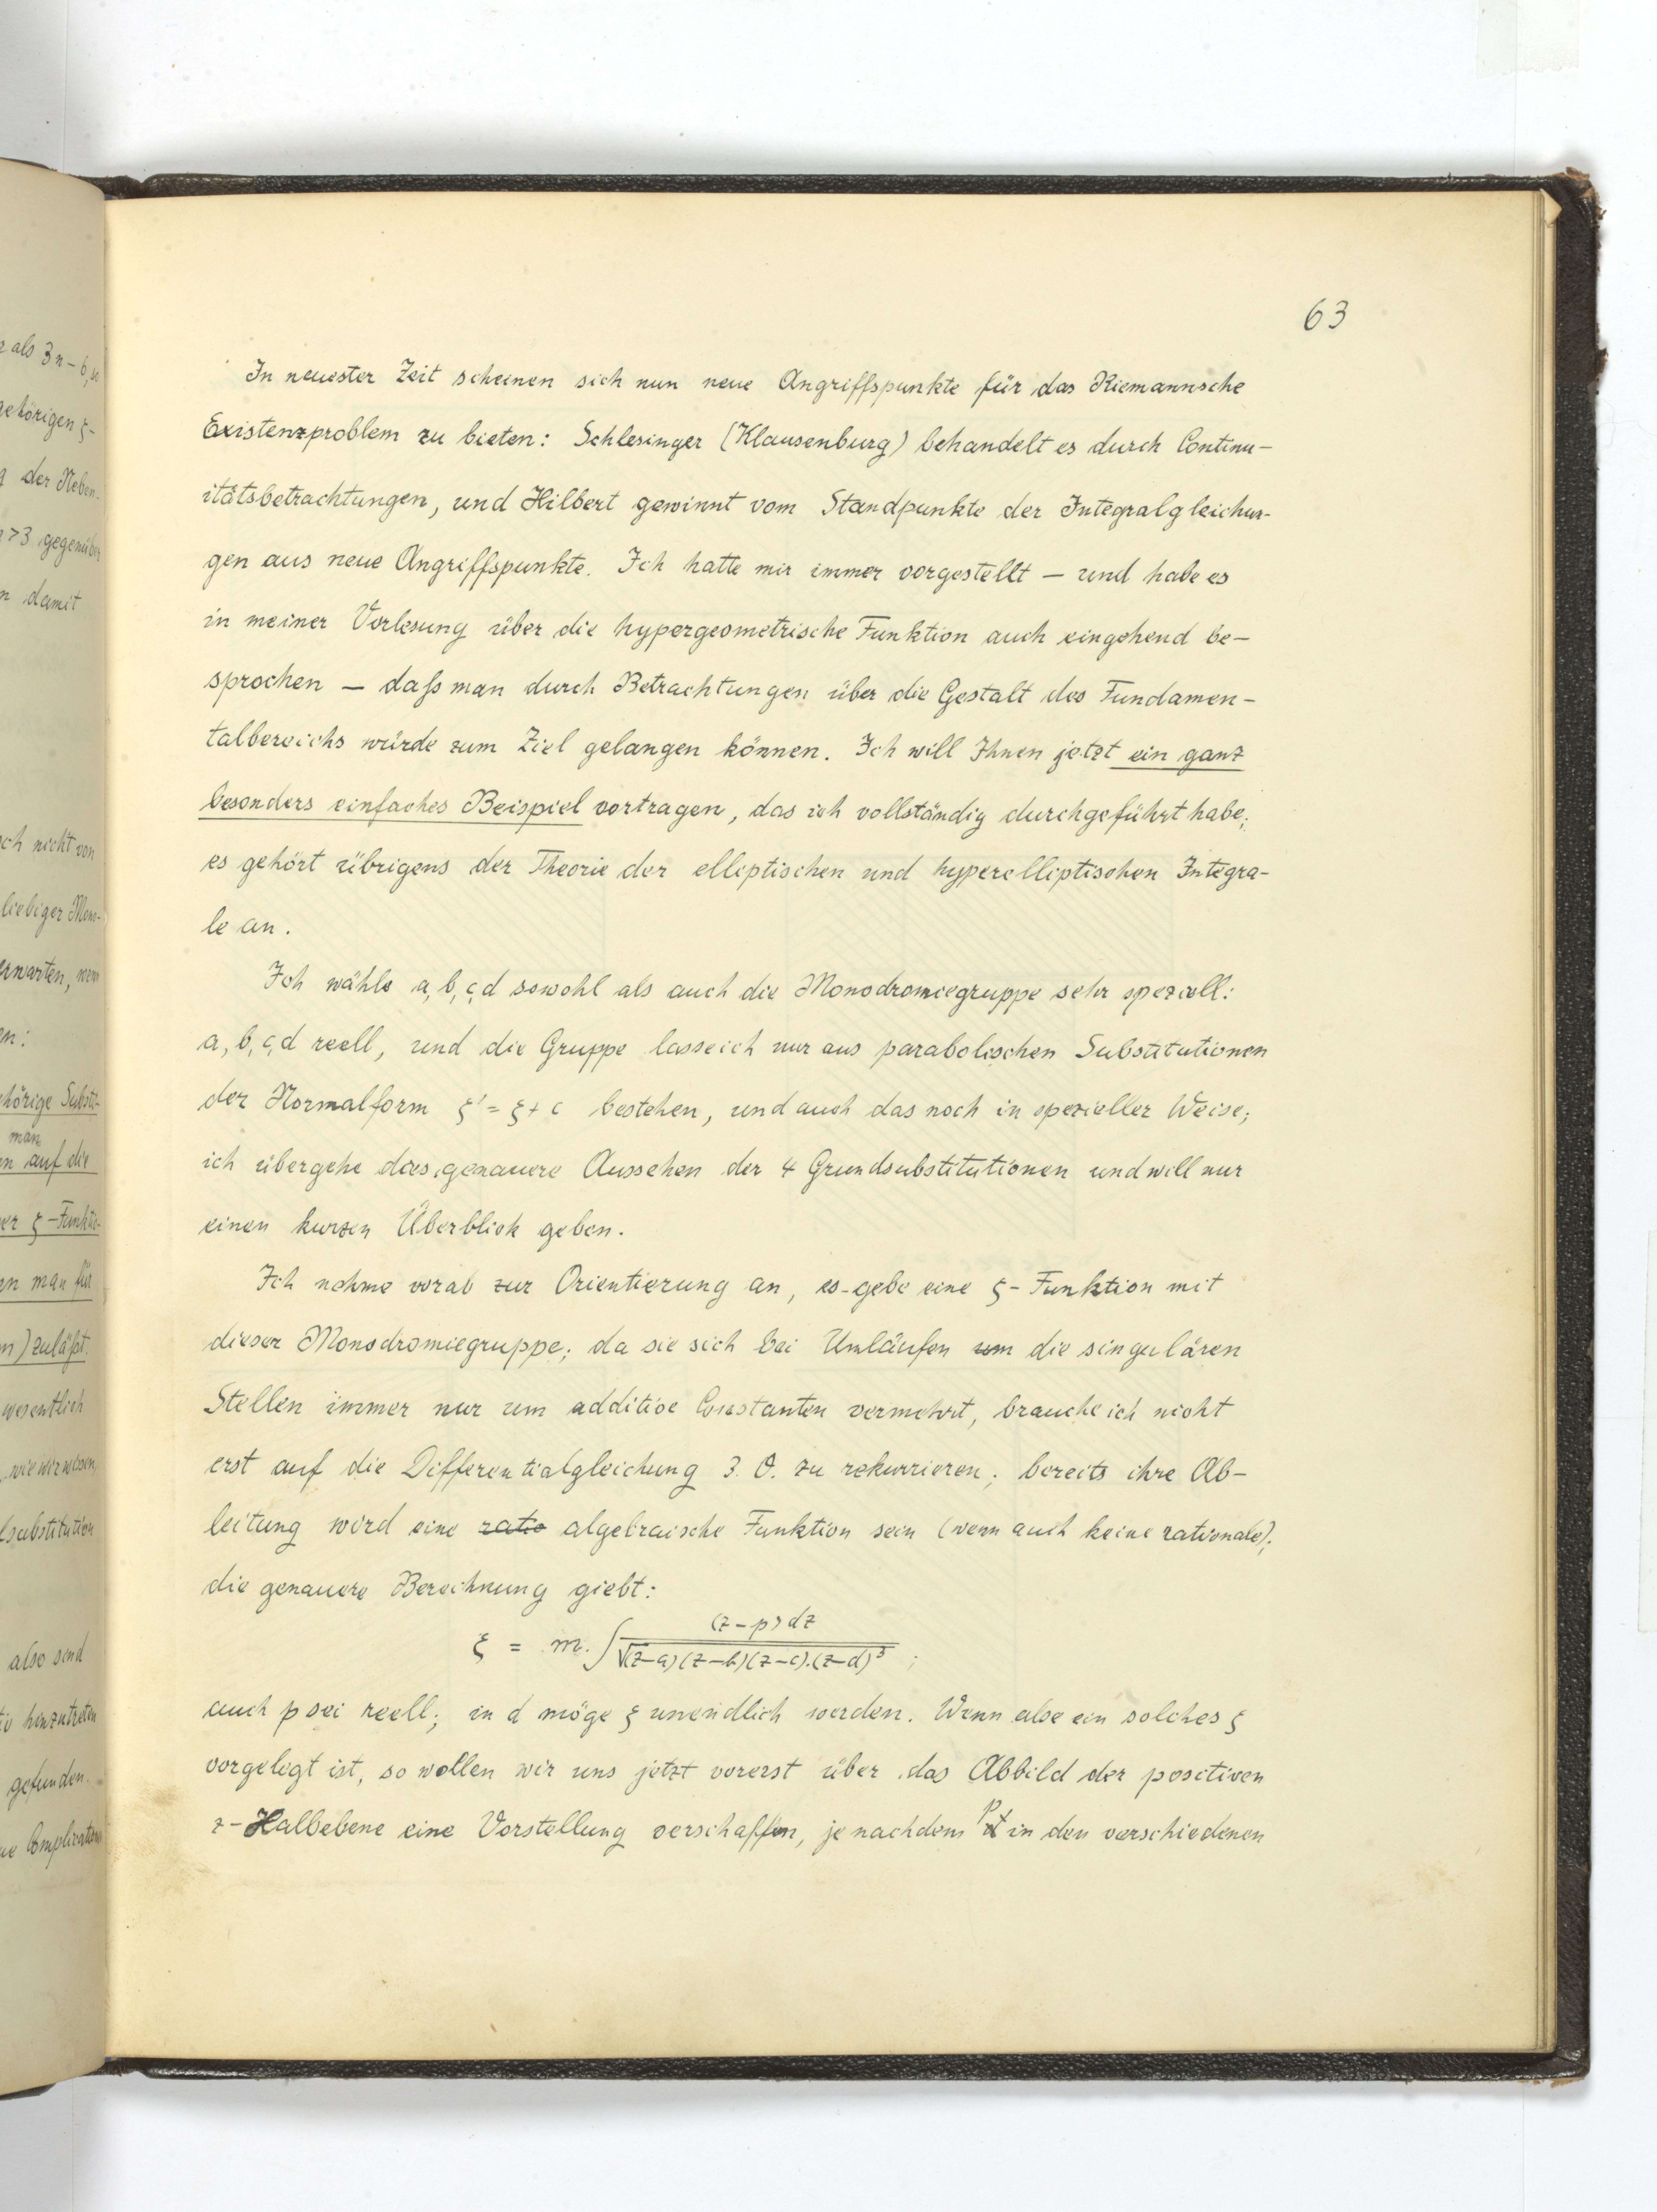 63
In neuester Zeit scheinen sich nun neue Angriffspunkte für das Riemannsche
Existenzproblem zu bieten: Schlesinger (Klausenburg) behandelt es durch Continu-
itätsbetrachtungen, und Hilbert gewinnt vom Standpunkte der Integralgleichun-
gen aus neue Angriffspunkte. Ich hatte mir immer vorgestellt — und habe es
in meiner Vorlesung über die hypergeometrische Funktion auch eingehend be-
sprochen — daß man durch Betrachtungen über die Gestalt des Fundamen-
talbereichs würde zum Ziel gelangen können. Ich will Ihnen jetzt ein ganz
besonders einfaches Beispiel vortragen, das ich vollständig durchgeführt habe;
es gehört übrigens der Theorie der elliptischen und hyperelliptischen Integra-
le an.
Ich wähle a, b, c, d sowohl als auch die Monodromiegruppe sehr speziell:
a, b, c, d reell, und die Gruppe lasse ich nur aus parabolischen Substitutionen
der Normalform ξ' = ξ + c bestehen, und auch das noch in spezieller Weise;
ich übergehe das genauere Aussehen der 4 Grundsubstitutionen und will nur
einen kurzen Überblick geben.
Ich nehme vorab zur Orientierung an, es gebe eine ξ-Funktion mit
dieser Monodromiegruppe; da sie sich bei Umläufen um die singulären
Stellen immer nur um additive Constanten vermehrt, brauche ich nicht
erst auf die Differentialgleichung 3. O. zu rekurrieren; bereits ihre Ab-
leitung wird eine ratio algebraische Funktion sein (wenn auch keine rationale);
die genauere Berechnung giebt:
ξ = m. ∫ (z-p) dz / √(z-a)(z-b)(z-c).(z-d)³ ;
auch p sei reell; in d möge ξ unendlich werden. Wenn also ein solches ξ
vorgelegt ist, so wollen wir uns jetzt vorerst über das Abbild der positiven
z-Halbebene eine Vorstellung verschaffen, je nachdem p in den verschiedenen
als 3n-6, so
gehörigen ξ-
der Neben-
>3 gegenüber
damit
nicht von
liebiger Mono-
erwarten, wenn
hörige Substi-
man
auf die
ξ-Funktio-
man für
zuläßt.
wesentlich
wie wir wissen,
substitution
also sind
hinzutreten
gefunden.
Complication